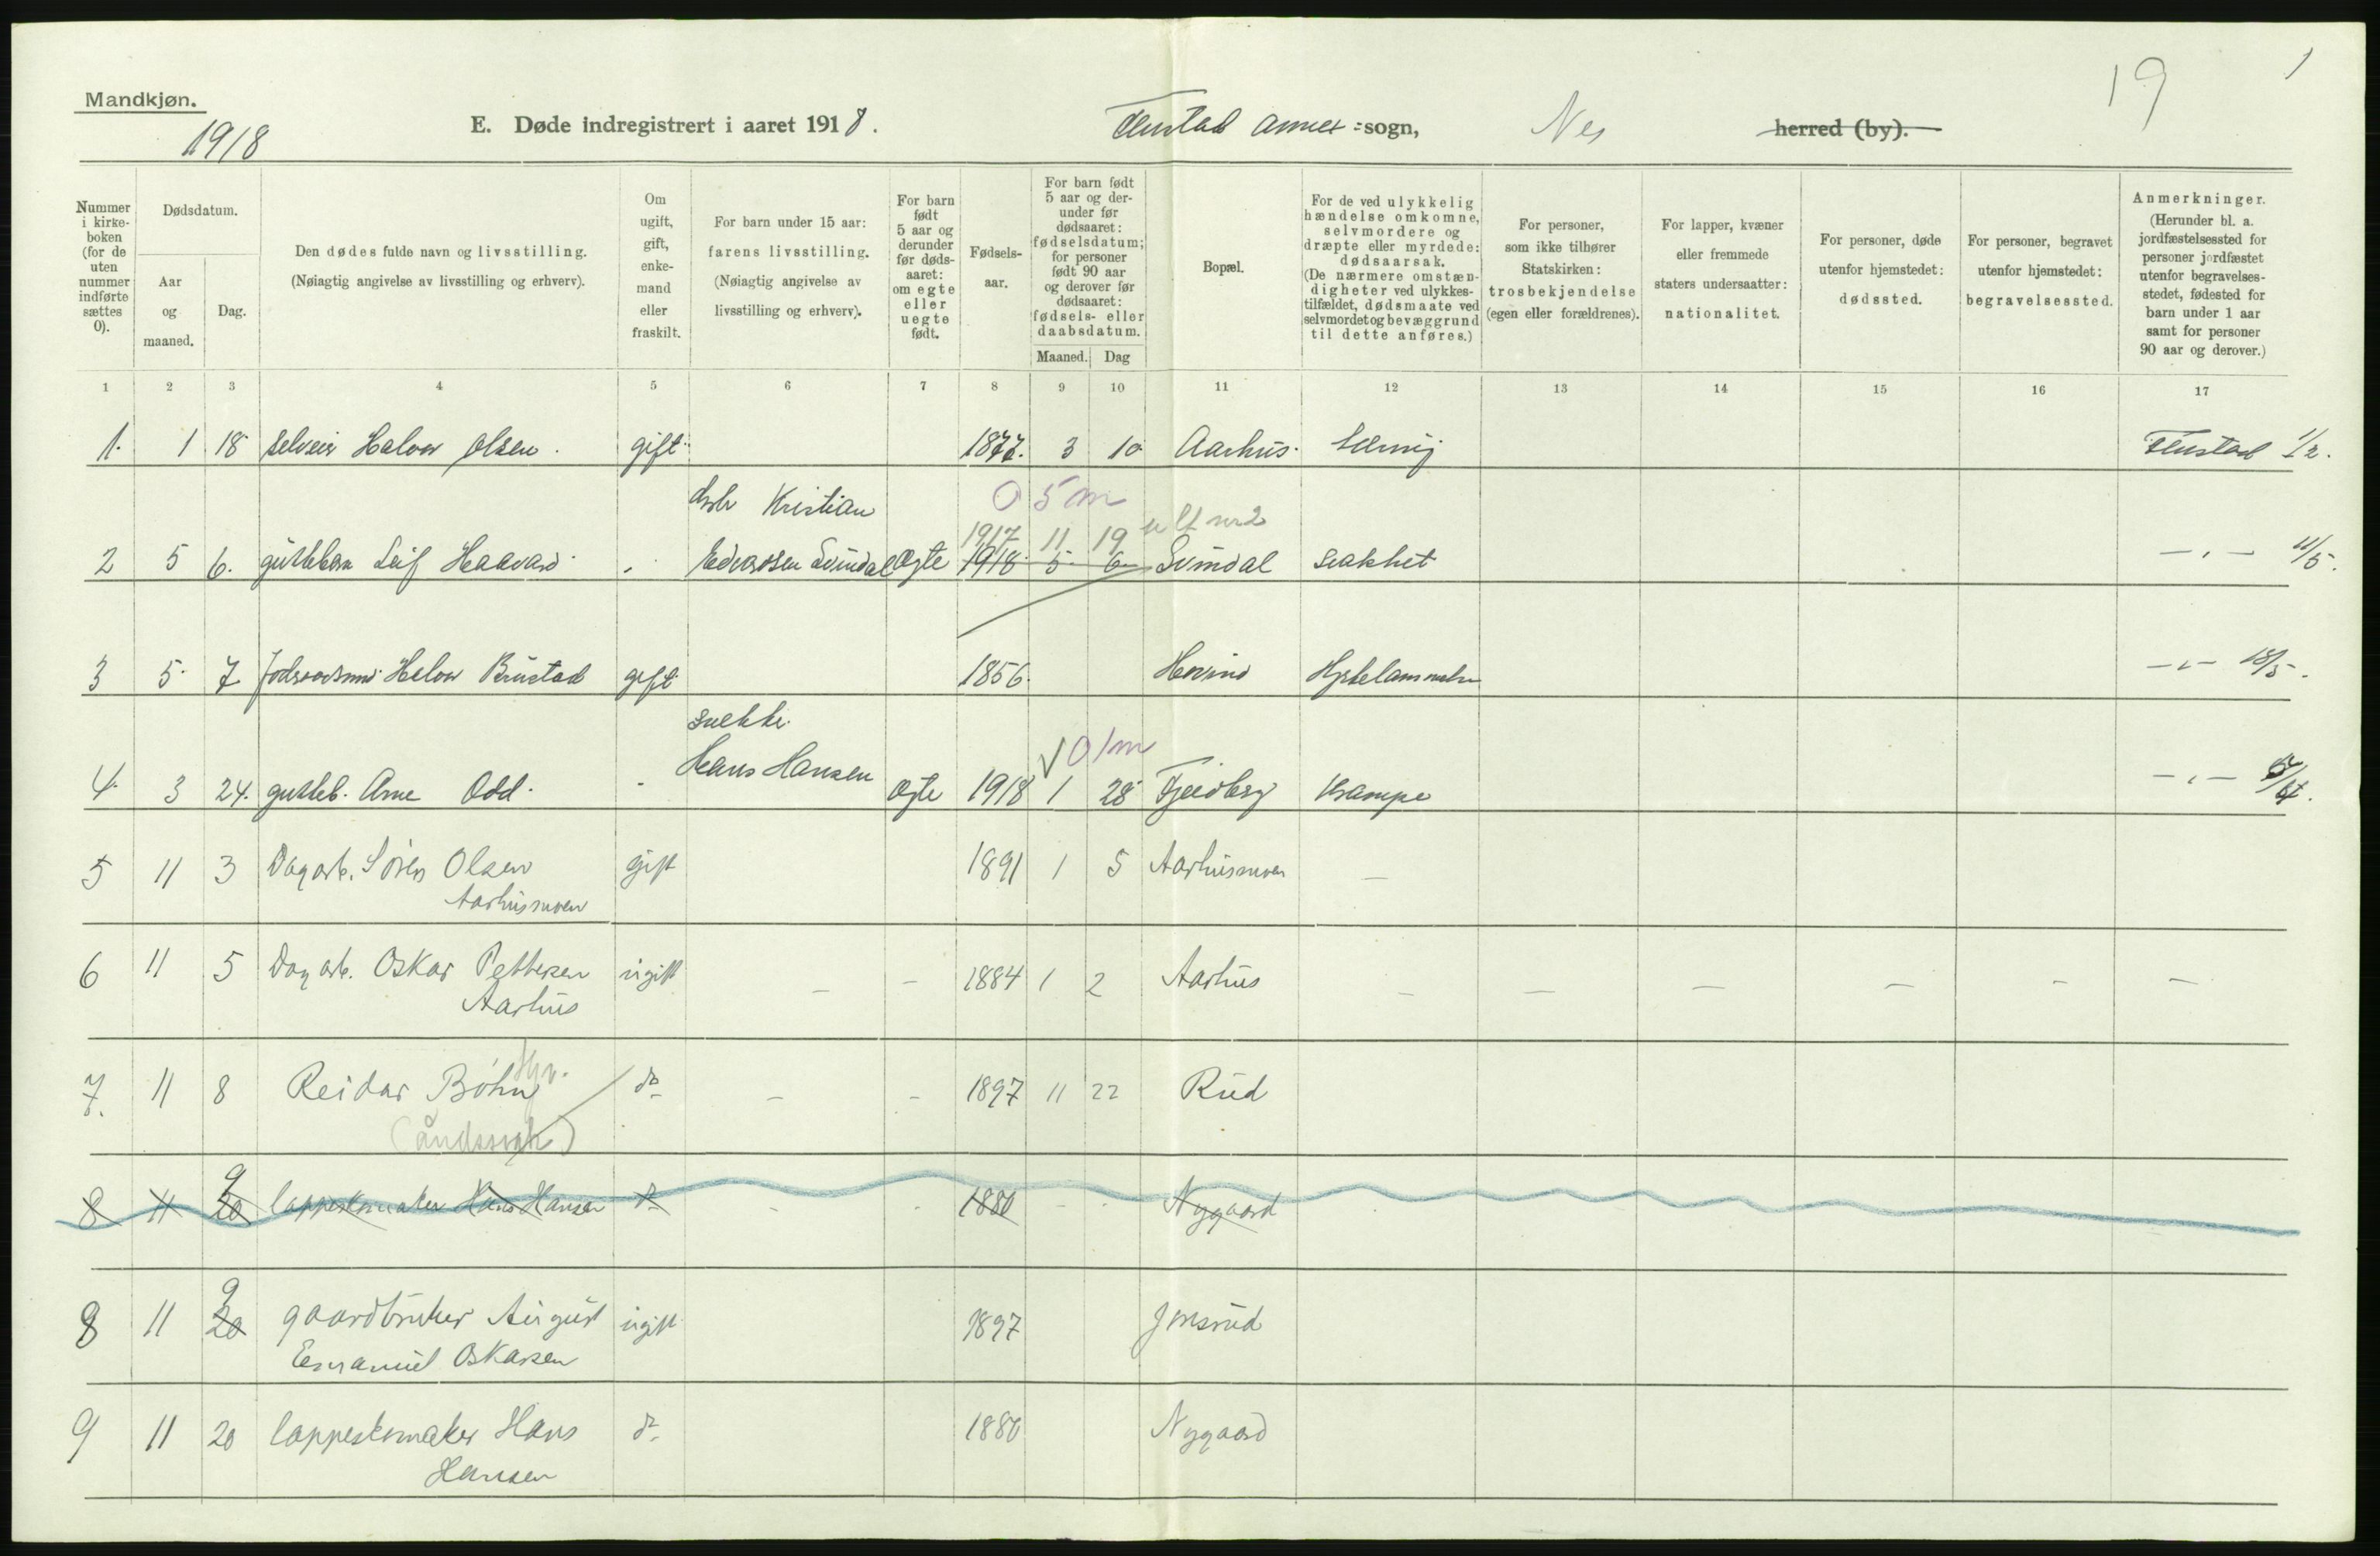 19
1
Mandkjøn.
1918
E. Døde indregistrert i aaret 1918. Tenstad annex =sogn, Nes herred (by).
Nummer i kirkeboken (for de uten nummer indførte sættes 0).
Dødsdatum.
Aar og maaned.
Dag.
Den dødes fulde navn og livsstilling.
(Nøiagtig angivelse av livsstilling og erhverv).
Om ugift, gift, enkemand eller fraskilt.
For barn under 15 aar: farens livsstilling.
(Nøiagtig angivelse av livsstilling og erhverv).
For barn født 5 aar og derunder før dødsaaret: om egte eller uegte født.
Fødselsaar.
For barn født 5 aar og derunder før dødsaaret: fødselsdatum; for personer født 90 aar og derover før dødsaaret: fødsels- eller daabsdatum.
Maaned. Dag
Bopæl.
For de ved ulykkelig hændelse omkomne, selvmordere og dræpte eller myrdede: dødsaarsak.
(De nærmere omstændigheter ved ulykkestilfældet, dødsmaate ved selvmordet og bevæggrund til dette anføres.)
For personer, som ikke tilhører Statskirken: trosbekjendelse (egen eller forældrenes).
For lapper, kvæner eller fremmede staters undersaatter: nationalitet.
For personer, døde utenfor hjemstedet: dødssted.
For personer, begravet utenfor hjemstedet: begravelsessted.
Anmerkninger.
(Herunder bl. a. jordfæstelsessted for personer jordfæstet utenfor begravelsesstedet, fødested for barn under 1 aar samt for personer 90 aar og derover.)
1 2 3 4 5 6 7 8 9 10 11 12 13 14 15 16 17
1. 1 18 selveier Halvor Olsen. gift. 1877. 3 10 Aarhus. Tenstad 1/2.
Kristian 0 5 m
1917 11 19
2 5 6. guttebarn Leif Haavard. Edvardsen Svindal ægte 1918. 5. 6. Svindal svakhet — " — 11/5.
3 5. 7 Halvor Brustad gift 1856. Hovind Hjertelammelse — " — 18/5.
Hans Hansen √ 0 1 m
4. 3 24. gutteb. Arne Odd. ægte 1918 1 28 Krampe — " — 5/4.
5 11 3 Dagarb. Søren Olsen gift 1891 1 5 Aarhusmoen —
Aarhusmoen
6 11 5 Dagarb. Oskar Pettersen ugift — — 1884 1 2 Aarhus — — — — — —
Aarhus
7. 11 8 Reidar Bøhn do — — 1897 11 22 Rud
(åndssvak)
9
8 11 20 lappeskomaker Hans Hansen do - - 1880 - - Nygaard
9
8 11 20 gaardbruker August ugift 1897 Jonsrud
Emanuel Oskarsen
9 11 20 lappeskomaker Hans do 1880 Nygaard
Hansen